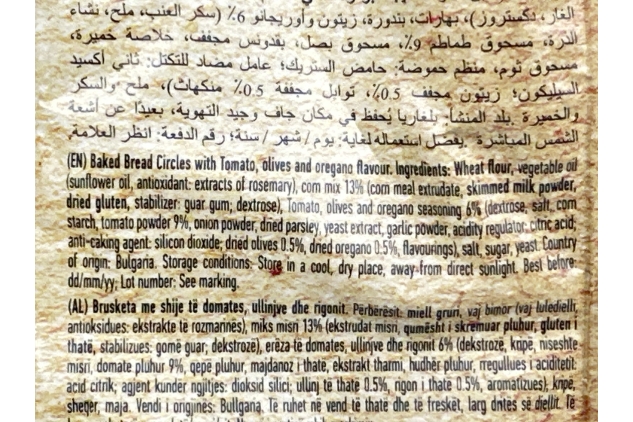 الغار، دكستروز)، بهارات، بندورة، زيتون وأوريجانو 6٪ (سكر العنب، ملح، نشاء
الذرة، مسحوق طماطم 9٪، مسحوق بصل، بقدونس مجفف، خلاصة خميرة،
مسحوق ثوم، منظم حموضة: حامض الستريك؛ عامل مضاد للتكتل: ثاني أكسيد
السيليكون؛ زيتون مجفف 0.5٪، توابل مجففة 0.5٪ منكهات)، ملح والسكر
والخميرة. بلد المنشأ: بلغاريا يُحفظ في مكان جاف وجيد التهوية، بعيدًا عن أشعة
الشمس المباشرة. يفضل استعماله لغاية: يوم / شهر / سنة؛ رقم الدفعة: انظر العلامة.
(EN) Baked Bread Circles with Tomato, olives and oregano flavour. Ingredients: Wheat flour, vegetable oil
(sunflower oil, antioxidant: extracts of rosemary), corn mix 13% (corn meal extrudate, skimmed milk powder,
dried gluten, stabilizer: guar gum; dextrose), Tomato, olives and oregano seasoning 6% (dextrose, salt, corn
starch, tomato powder 9%, onion powder, dried parsley, yeast extract, garlic powder, acidity regulator: citric acid;
anti-caking agent: silicon dioxide; dried olives 0.5%, dried oregano 0.5%, flavourings), salt, sugar, yeast. Country
of origin: Bulgaria. Storage conditions: Store in a cool, dry place, away from direct sunlight. Best before:
dd/mm/yy. Lot number: See marking.
(AL) Brusketa me shije të domates, ullinjve dhe rigonit. Përbërësit: miell gruri, vaj bimor (vaj luledielli,
antioksidues: ekstrakte të rozmarinës), miks misri 13% (ekstrudat misri, qumësht i skremuar pluhur, gluten i
thatë, stabilizues: gomë guar; dekstrozë), erëza të domates, ullinjve dhe rigonit 6% (dekstrozë, kripë, niseshte
misri, domate pluhur 9%, qepë pluhur, majdanoz i thatë, ekstrakt tharmi, hudhër pluhur, rregullues i aciditetit:
acid citrik; agjent kundër ngjitjes: dioksid silici; ullinj të thatë 0.5%, rigon i thatë 0.5%, aromatizues), kripë,
sheqer, maja. Vendi i origjinës: Bullgaria. Të ruhet në vend të thatë dhe të freskët, larg dritës së diellit. Të